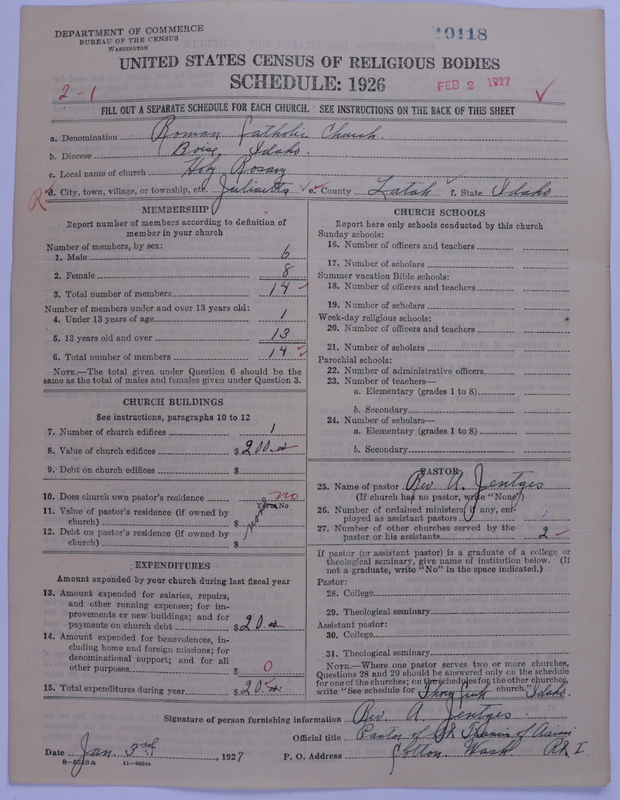 DEPARTMENT OF COMMERCE
BUREAU OF THE CENSUS
WASHINGTON
19118
UNITED STATES CENSUS OF RELIGIOUS BODIES
SCHEDULE: 1926
FEB 2 1927
2-1
FILL OUT A SEPARATE SCHEDULE FOR EACH CHURCH. SEE INSTRUCTIONS ON THE BACK OF THIS SHEET
a. Denomination Roman Catholic Church.
b. Diocese Boise, Idaho.
c. Local name of church Holy Rosary
R d. City, town, village, or township, etc. Juliaetta e. County Latah f. State Idaho
MEMBERSHIP
Report number of members according to definition of
member in your church
Number of members, by sex:
1. Male 6
2. Female 8
3. Total number of members 14
Number of members under and over 13 years old:
4. Under 13 years of age 1
5. 13 years old and over 13
6. Total number of members 14
NOTE.—The total given under Question 6 should be
same as the total of males and females given under Question 3.
CHURCH BUILDINGS
See instructions, paragraphs 10 to 12
7. Number of church edifices 1
8. Value of church edifices $200.00
9. Debt on church edifices $
10. Does church own pastor's residence no
Yes or No
11. Value of pastor's residence (if owned by
church) $ none
12. Debt on pastor's residence (if owned by
church) $
EXPENDITURES
Amount expended by your church during last fiscal year
13. Amount expended for salaries, repairs,
and other running expenses; for im-
provements or new buildings; and for
payments on church debt $20.00
14. Amount expended for benevolences, in-
cluding home and foreign missions; for
denominational support; and for all
other purposes $ 0
15. Total expenditures during year $20.00
CHURCH SCHOOLS
Report here only schools conducted by this church
Sunday schools:
16. Number of officers and teachers
17. Number of scholars
Summer vacation Bible schools:
18. Number of officers and teachers
19. Number of scholars
Week-day religious schools:
20. Number of officers and teachers
21. Number of scholars
Parochial schools:
22. Number of administrative officers
23. Number of teachers—
a. Elementary (grades 1 to 8)
b. Secondary
24. Number of scholars—
a. Elementary (grades 1 to 8)
b. Secondary
PASTOR
25. Name of pastor Rev A. Jentges
(If church has no pastor, write "None")
26. Number of ordained ministers, if any, em-
ployed as assistant pastors
27. Number of other churches served by the
pastor or his assistants 2
If pastor (or assistant pastor) is a graduate of a college or
theological seminary, give name of institution below. (If
not a graduate, write "No" in the space indicated.)
Pastor:
28. College
29. Theological seminary
Assistant pastor:
30. College
31. Theological seminary
NOTE.—Where one pastor serves two or more churches,
Questions 28 and 29 should be answered only on the schedule
for one of the churches; on the schedules for the other churches,
write "See schedule for church." Idaho.
Signature of person furnishing information Rev. A. Jentges
Official title Pastor of St Francis of Assisi
Date Jan. 3rd, 1927 P. O. Address Colton. Wash RR 1
8-5518 a